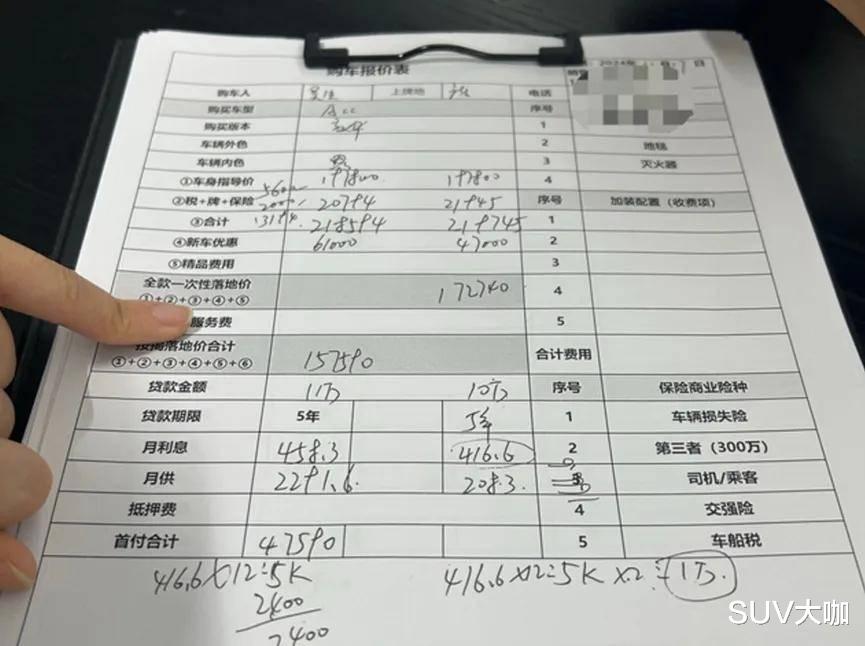 购车报价表
2024年 月 日
购车人 上牌地 电话
购买车型 Acc 序号
购买版本 豪华 1
车辆外色 2 地毯
车辆内色 黑 3 灭火器
①车身指导价 197800 197800 4
②税+牌+保险 5600 2000 13194 20794 21945 序号 加装配置（收费项）
③合计 218594 219745 1
④新车优惠 61000 47000 2
⑤精品费用 3
全款一次性落地价 172740 4
①+②+③+④+⑤
服务费 5
按揭落地价合计 157590 合计费用
①+②+③+④+⑤+⑥
贷款金额 11万 10万 序号 保险商业险种
贷款期限 5年 5年 1 车辆损失险
月利息 458.3 416.6 2 第三者（300万）
月供 2291.6 208.3 3 司机/乘客
抵押费 4 交强险
首付合计 47590 5 车船税
416.6×12=5K 416.6×12=5K×2=1万
2400
7400
SUV大咖